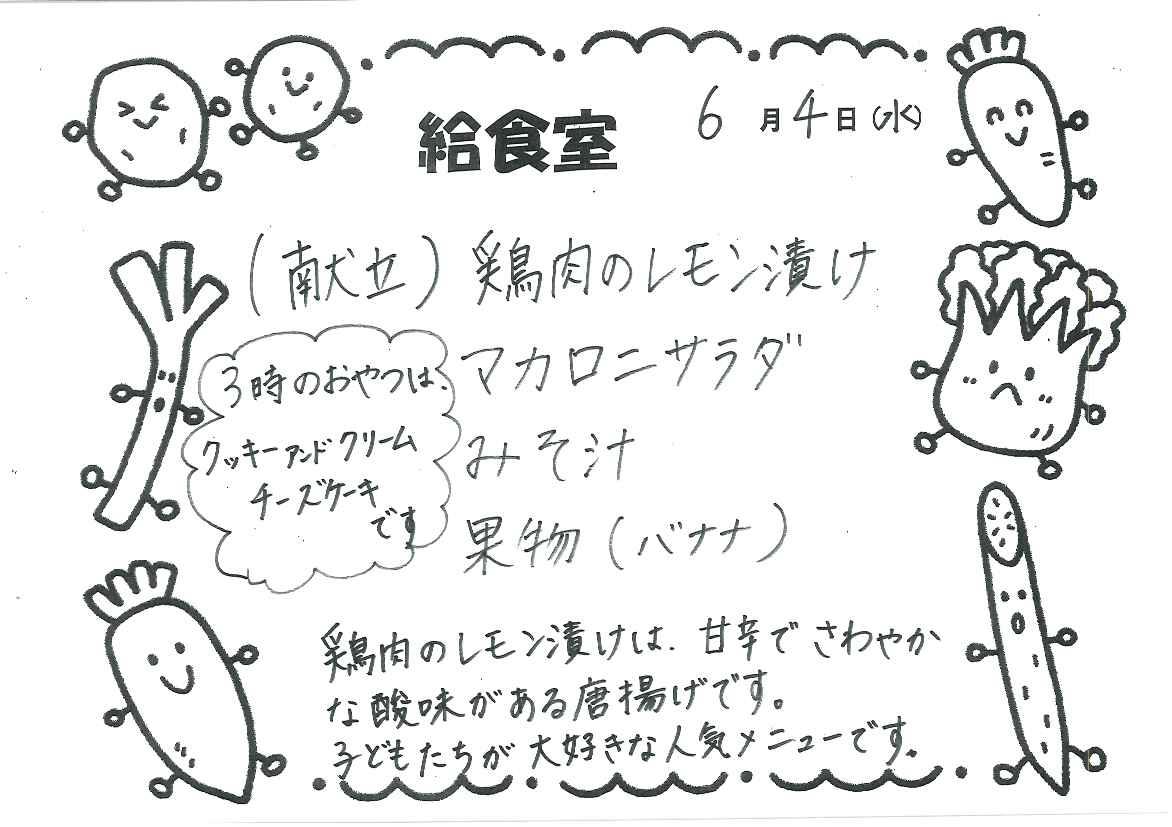 給食室 6月4日(水)
(献立) 鶏肉のレモン漬け
マカロニサラダ
みそ汁
果物(バナナ)
3時のおやつは、
クッキーアンドクリーム
チーズケーキ
です
鶏肉のレモン漬けは、甘辛でさわやか
な酸味がある唐揚げです。
子どもたちが大好きな人気メニューです。